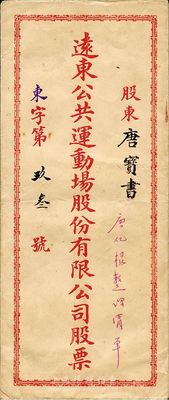 股東 唐寶書
遠東公共運動場股份有限公司股票
東字第 玖叁 號